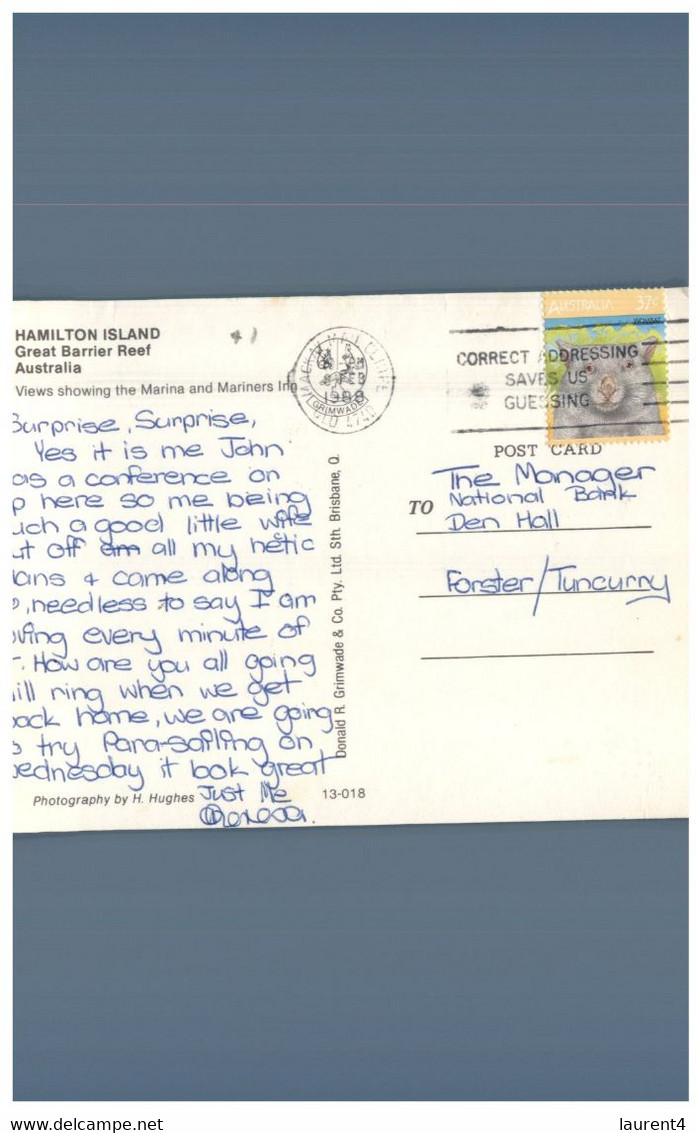 HAMILTON ISLAND
Great Barrier Reef
Australia
Views showing the Marina and Mariners Inn
urprise, Surprise,
Yes it is me John
as a conference on
p here so me being
uch a good little wife
ut off all my hetic
lans + came along
, needless to say I am
ving every minute of
. How are you all going
ill ring when we get
ack home, we are going
o try Para-sailing on
ednesday it look great
Just Me
Photography by H. Hughes
13-018
Donald R. Grimwade & Co. Pty. Ltd. Sth. Brisbane, Q.
FEB
1988
QLD 4740
CORRECT ADDRESSING
SAVES US
GUESSING
AUSTRALIA 37c
WOMBAT
POST CARD
TO
The Manager
National Bank
Den Hall
Forster/Tuncurry
www.delcampe.net
laurent4